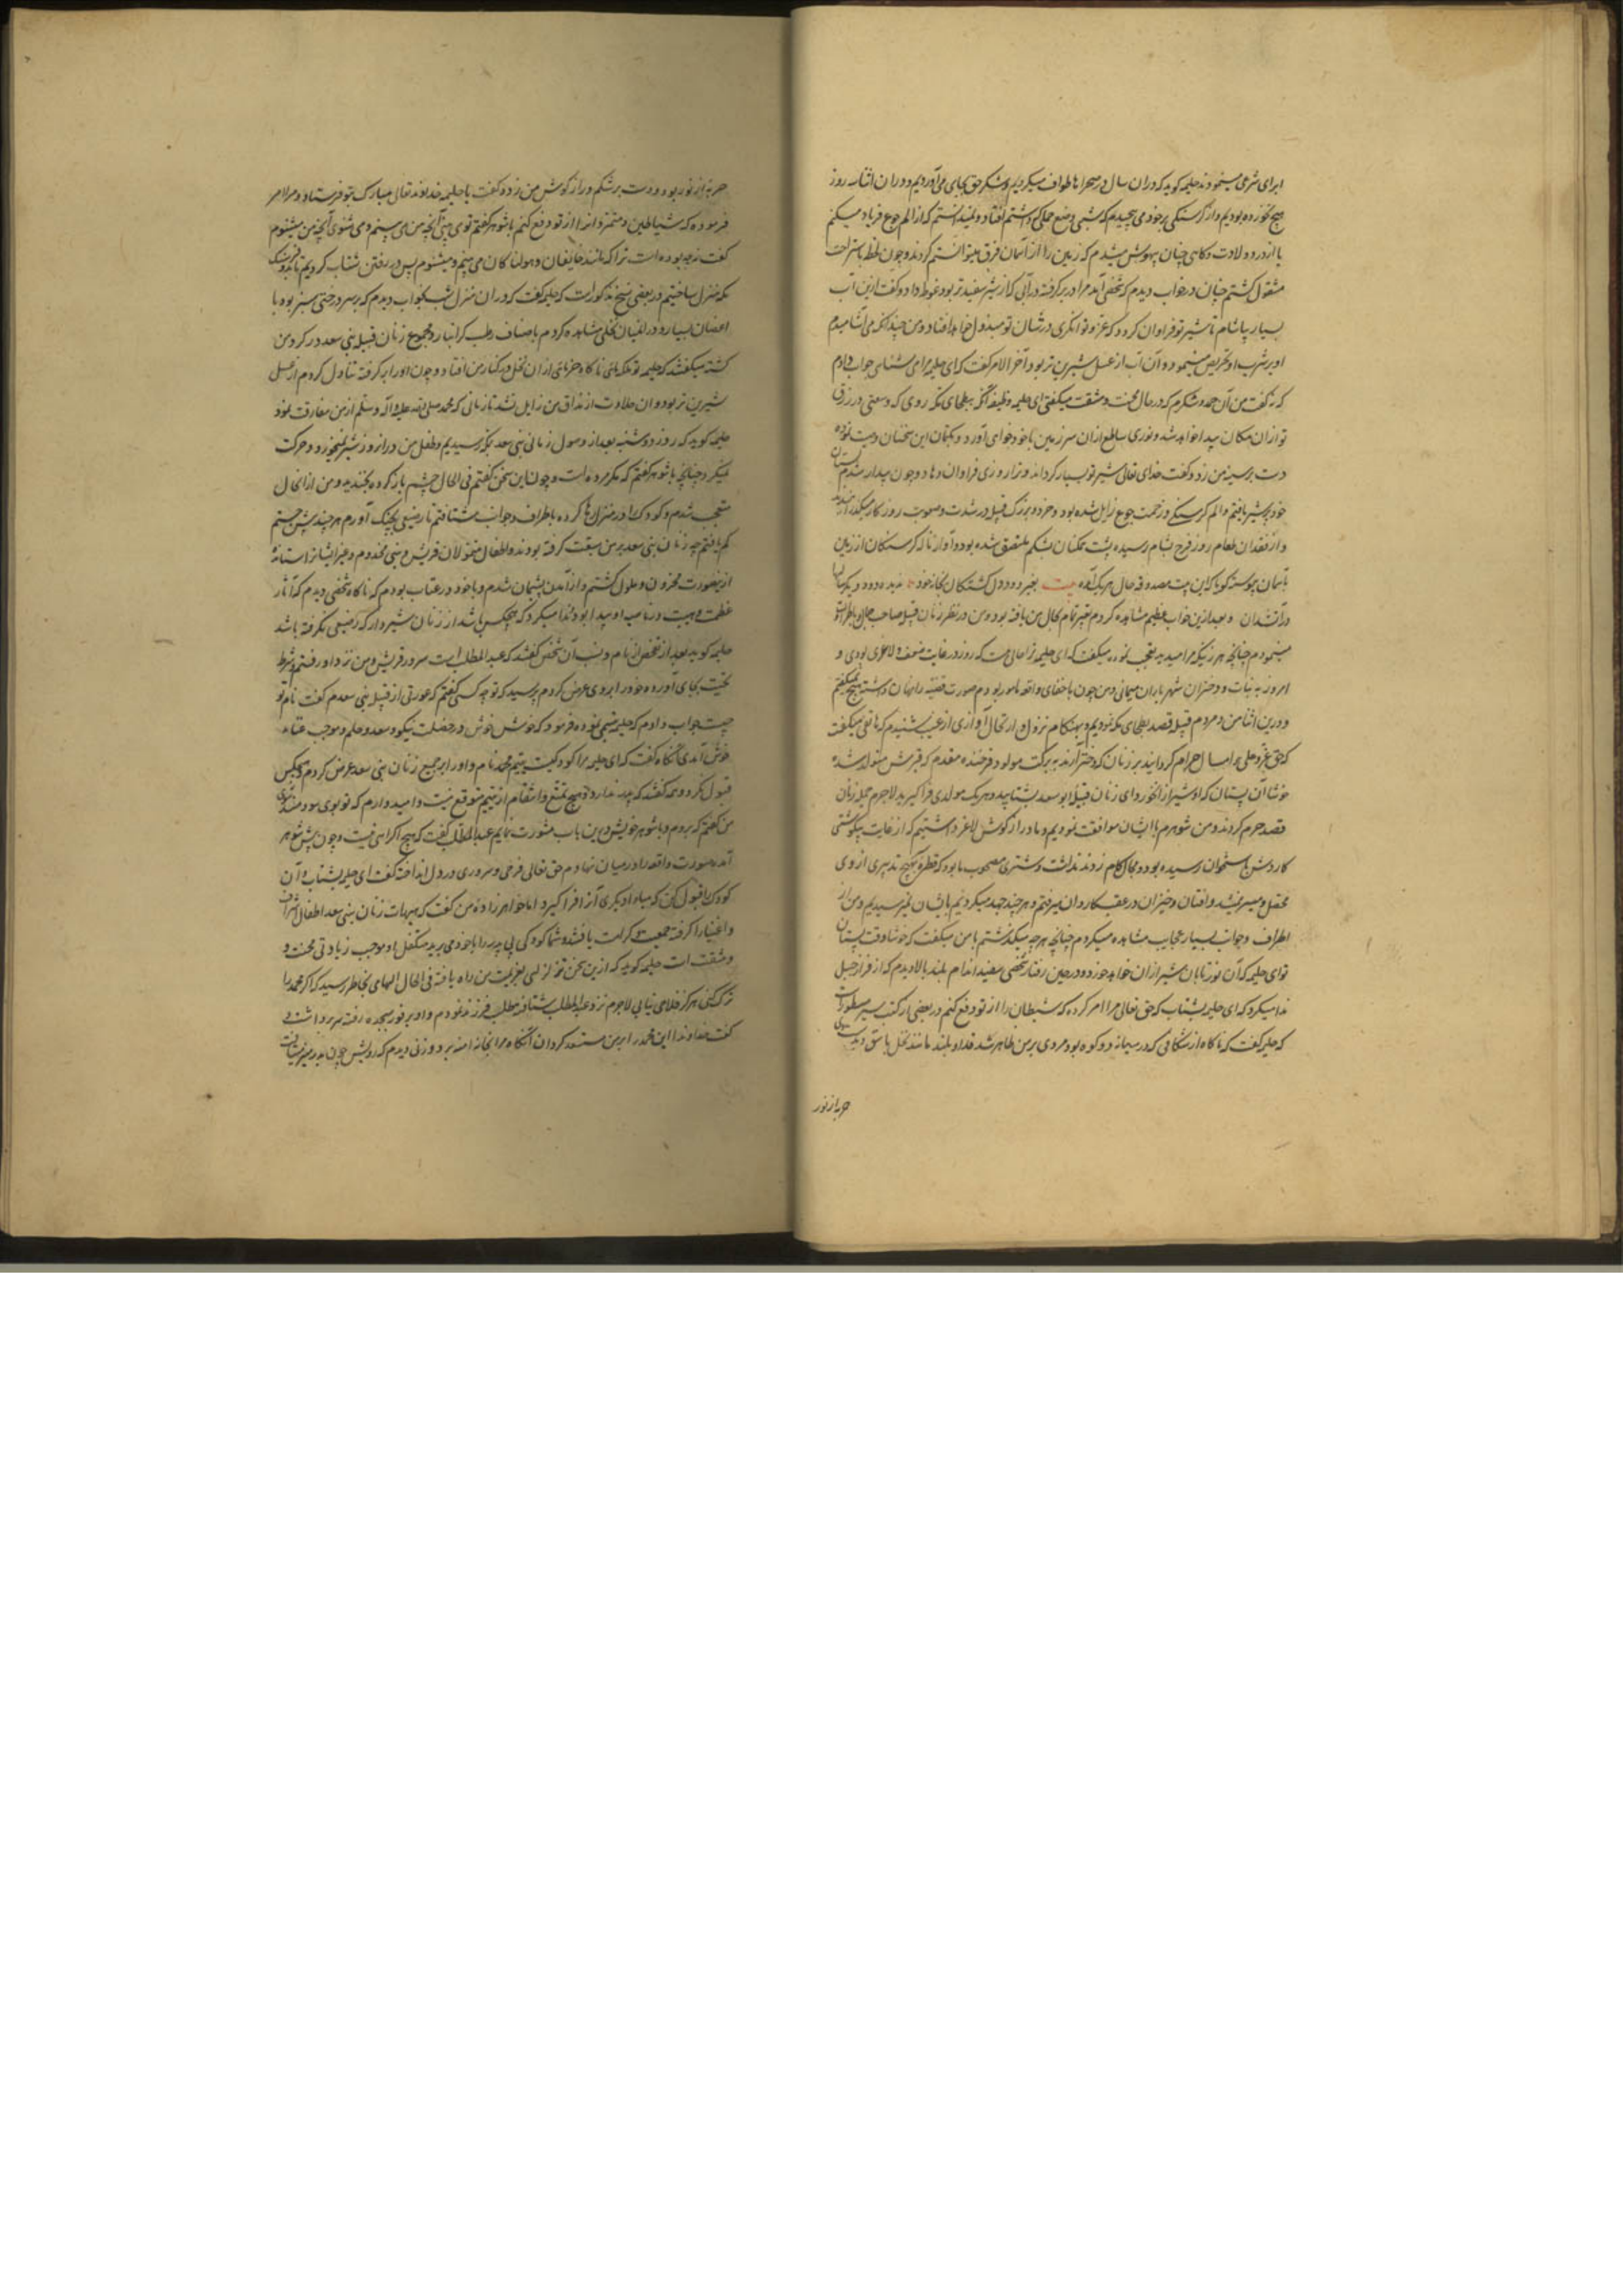 ابرای شرعی مینمودند حلیمه کوید که دران سال در صحراها طواف میکردیم و شکر حق بجای می‌آوردیم و دران اثنا سه روز
هیچ نخورده بودیم و از کرسنکی برخود می پیچیدم که شبی وضع حملی که داشتم افتاد و نمیدانستم که از الم جوع فریاد میکنم
یا از درد ولادت و کاهی چنان بیهوش میشدم که زمین را از آسمان فرق نمیتوانستم کرد و چون لحظه باستراحت
مشغول کشتم چنان در خواب دیدم که شخصی آمد مرا در بر کرفته در آبی که از شیر سفیدتر بود غوطه داد و کفت ازین آب
بسیار بیاشام تا شیر تو فراوان کردد که عز و توانکری در شان تو مبذول خواهد افتاد و من چندانکه می آشامیدم
او بر شرب او تحریص مینمود و آن آب از عسل شیرین تر بود و آخر الامر کفت که ای حلیمه مرا می شناسی جواب دادم
که نه کفت من آن حمد و شکرم که در حال محنت و مشقت میکفتی ای حلیمه وظیفه آنکه ببطحای مکه روی که وسعتی در رزق
تو ازان مکان پیدا خواهد شد و نوری ساطع ازان سرزمین باخود خواهی آورد و بکتمان این سخنان وصیت نموده
دست بر سینه من زد و کفت خدای تعالی شیر تو بسیار کرداند و ترا روزی فراوان دهاد و چون بیدار شدم پستان
خود پر شیر یافتم و الم کرسنکی و زحمت جوع زایل شده بود و خرد و بزرک قبیله در شدت و صعوبت روزکار میکذرانیدند
و از فقدان طعام روز فرح بشام رسیده پشت همکنان بشکم ملتصق شده بود و آواز ناله کرسنکان از زمین
بآسمان پیوسته کویا که این بیت مصدوقه حال هر یک آمده بیت بغیر دود دل کشتکان بخانه خود ندیده دود
دران و بعد ازین خواب عظیم مشاهده کردم تغییر تمام بحال من یافته بود و من در نظر زنان قبیله صاحب جمال
مینمودم چنانچه هر زنیکه مرا میدید تعجب نموده میکفت که ای حلیمه ترا حال چیست که روز در غایت ضعف و لاغری بودی و
امروز به بنات و دختران شهریاران میمانی و من چون باخفای واقعه مامور بودم صورت قضیه را پنهان داشته هیچ نمیکفتم
و درین اثنا من و مردم قبیله قصد بطحای مکه نمودیم و بهنکام نزول و ارتحال آوازی از غیب شنیدم که هاتفی میکفت
که حق عز و علی امسال حرام کردانید بر زنان که دختر آرند به برکت مولود فرخنده مقدم که در قریش متولد شده
خوشا آن پستان که او شیر ازان خورد ای زنان قبیله ابو سعد بشتابید و هر یک مولدی فرا کیرید لاجرم جمله زنان
قصد حرم کردند و من شوهرم با ایشان موافقت نمودیم و ما دراز کوش لاغر داشتیم که از غایت بیکوشتی
کاردش باستخوان رسیده بود و مجال کام زدن نداشت و شتری مصحوب ما بود که قطره بهیچ تدبیری از وی
محصل و میسر نمیشد و افتان و خیزان در عقب کاروان میرفتم و هر چند جهد میکردیم بایشان نمیرسیدیم و من از
اطراف و جوانب بسیار عجایب مشاهده میکردم چنانچه بهر چه میکذشتم با من میکفت که خوشا وقت پستان
تو ای حلیمه که آن نور تابان شیر ازان خواهد خورد و در حین رفتار شخصی سفید اندام بلند بالا دیدم که از فراز جبل
ندا میکرد که ای حلیمه بشتاب که حق تعالی مرا امر کرده که شیطان را از تو دفع کنم در بعضی از کتب سیر مسطورست
که حلیمه کفت که ناکاه از شکافی که در میانه دو کوه بود مردی بر من ظاهر شد قد او بلند مانند نخل باسق و بدست وی
حربه از نور
حربه از نور بود و دست بر شکم دراز کوش من زده کفت یا حلیمه خداوند تعالی مبارک بتو فرستاد و مرا امر
فرموده که شیاطین و متمردان را از تو دفع کنم با شوهر کفتم توی بینی آنچه من می بینم و می شنوی آنچه من میشنوم
کفت نه چه بوده است ترا که مانند خایفان و هولناکان می بینم و میشنوم پس در رفتن شتاب کردیم تا نزدیک
مکه منزل ساختیم و در بعضی نسخ مذکورست که حلیمه کفت که دران منزل شب بخواب دیدم که بر سر درختی سبز بود با
اغصان بسیار و در میان نخلی مشاهده کردم باصناف رطب کرانبار و مجموع زنان قبیله بنی سعد در کرد من
کشته میکفتند که حلیمه تو ملکه مائی ناکاه خرمائی ازان نخل در کنار من افتاد و چون او را بر کرفته تناول کردم از عسل
شیرین تر بود و آن حلاوت از مذاق من زایل نشد تا زمانی که محمد صلی الله علیه و آله و سلم از من مفارقت نمود
حلیمه کوید که روز دوشنبه بعد از وصول زنان بنی سعد بمکه رسیدیم و طفل من دران روز شیر نمیخورد و حرکت
نمیکرد چنانچه با شوهر کفتم که مکر مرده است و چون این سخن کفتم فی الحال چشم باز کرده بخندید و من ازان حال
متعجب شدم و کودک را در منزل رها کرده باطراف و جوانب مشتافتم تا رضیعی بچنک آورم هر چند بیش جستم
کم یافتم چه زنان بنی سعد بر من سبقت کرفته بودند و اطفال متمولان قریش و بنی مخزوم و غیر ایشان را ستانده
ازین صورت محزون و ملول کشتم و از آمدن پشیمان شدم و با خود در عتاب بودم که ناکاه شخصی دیدم که آثار
عظمت و هیبت در ناصیه او پیدا بود و ندا میکرد که هیچکس باشد از زنان شیردار که رضیعی نکرفته باشد
حلیمه کوید بعد از تفحص از نام و نسب آن شخص کفتند که عبد المطلب است سرور قریش و من نزد او رفتم و شرط
تحیت بجای آورده خود را بر وی عرض کردم پرسید که تو چه کسی کفتم که عورتی از قبیله بنی سعدم کفت نام تو
چیست جواب دادم که حلیمه تبسمی نموده فرمود که خوش خوش دو خصلت نیکو سعد و حلم و موجب غناء
خوش آمدی آنکاه کفت که ای حلیمه مرا کودکیست یتیم محمد نام و او را بر جمیع زنان بنی سعد عرض کردم هیچکس
قبول نکرد و همه کفتند که پدر ندارد و هیچ تمتع و انتفاع از یتیم متوقع نیست و امیدوارم که تو بوی سودمند شوی
من کفتم که بروم و با شوهر خویش درین باب مشورت نمایم عبد المطلب کفت که هیچ اکراهی نیست و چون پیش شوهر
آمده صورت واقعه را در میان نهادم حق تعالی فرحی و سروری در دل انداخته کفت ای حلیمه بشتاب و آن
کودک را قبول کن که مبادا دیکری آنرا فرا کیرد اما خواهرزاده من کفت که هیهات زنان بنی سعد اطفال اشراف
و اغنیا را کرفته جمعیت و کرامت یافتند و شما کودکی بی پدر را با خود می برید متکفل او موجب زیادتی محنت و
مشقت است حلیمه کوید که ازین سخن تزلزلی بعزیمت من راه یافته فی الحال الهامی بخاطر رسید که اکر محمد را
ترک کنی هرکز فلاحی نیابی لاجرم نزد عبد المطلب شتافته مطلب فرزند نمودم و او بر فور سجده رفته سر برداشت و
کفت خداوندا این محمد را بر من مستعد کردان آنکاه مرا بخانه آمنه برد و زنی دیدم که رویش چون بدر منیر میتافت